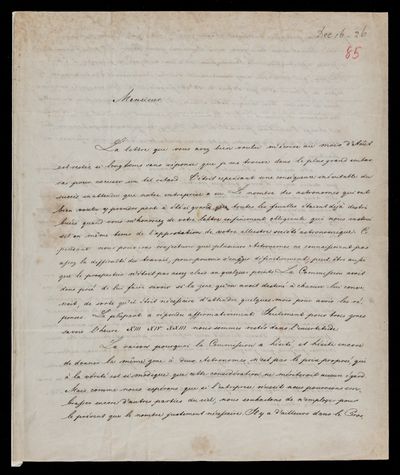 Dec 16 - 26
85
Monsieur
La lettre que vous avez bien voulu m'écrire au mois d'Août
est restée si longtems sans réponse que je me trouve dans le plus grand embar-
ras pour excuser un tel retard. C'était cependant une conséquence inévitable du
succès inattendu que notre entreprise a eu. Le nombre des astronomes qui ont
bien voulu y prendre part a été si grand que toutes les feuilles étaient déjà distri-
buées quand vous m'honoriez de votre lettre infiniment obligeante qui nous
est en même tems de l'approbation de votre illustre société astronomique. Ce-
pendant nous pouvions conjecturer que plusieurs Astronomes ne connaissaient pas
assez la difficulté du travail, pour pouvoir s'en définitivement, peut être aussi
que le prospectus n'était pas assez clair en quelques points. La Commission avait
donc prié de lui faire savoir si la zone qu'on avait destiné à chacun lui conve-
noit, de sorte qu'il était nécessaire d'attendre quelques mois pour avoir les ré-
ponses. La plupart a répondu affirmativement. Seulement pour trois zones
savoir l'heure XIII XIV XVIII nous sommes restés dans l'incertitude.
La raison pourquoi la Commission a hésité et hésite encore
de donner la même zone à deux Astronomes n'est pas le prix proposé qui
à la vérité est si modique que cette considération ne mériterait aucun égard.
Mais comme nous espérons que si l'entreprise réussit nous pourrons em-
brasser encore d'autres parties du ciel, nous souhaitons de n'employer pour
le présent que le nombre justement nécessaire. Il y a d'ailleurs dans le